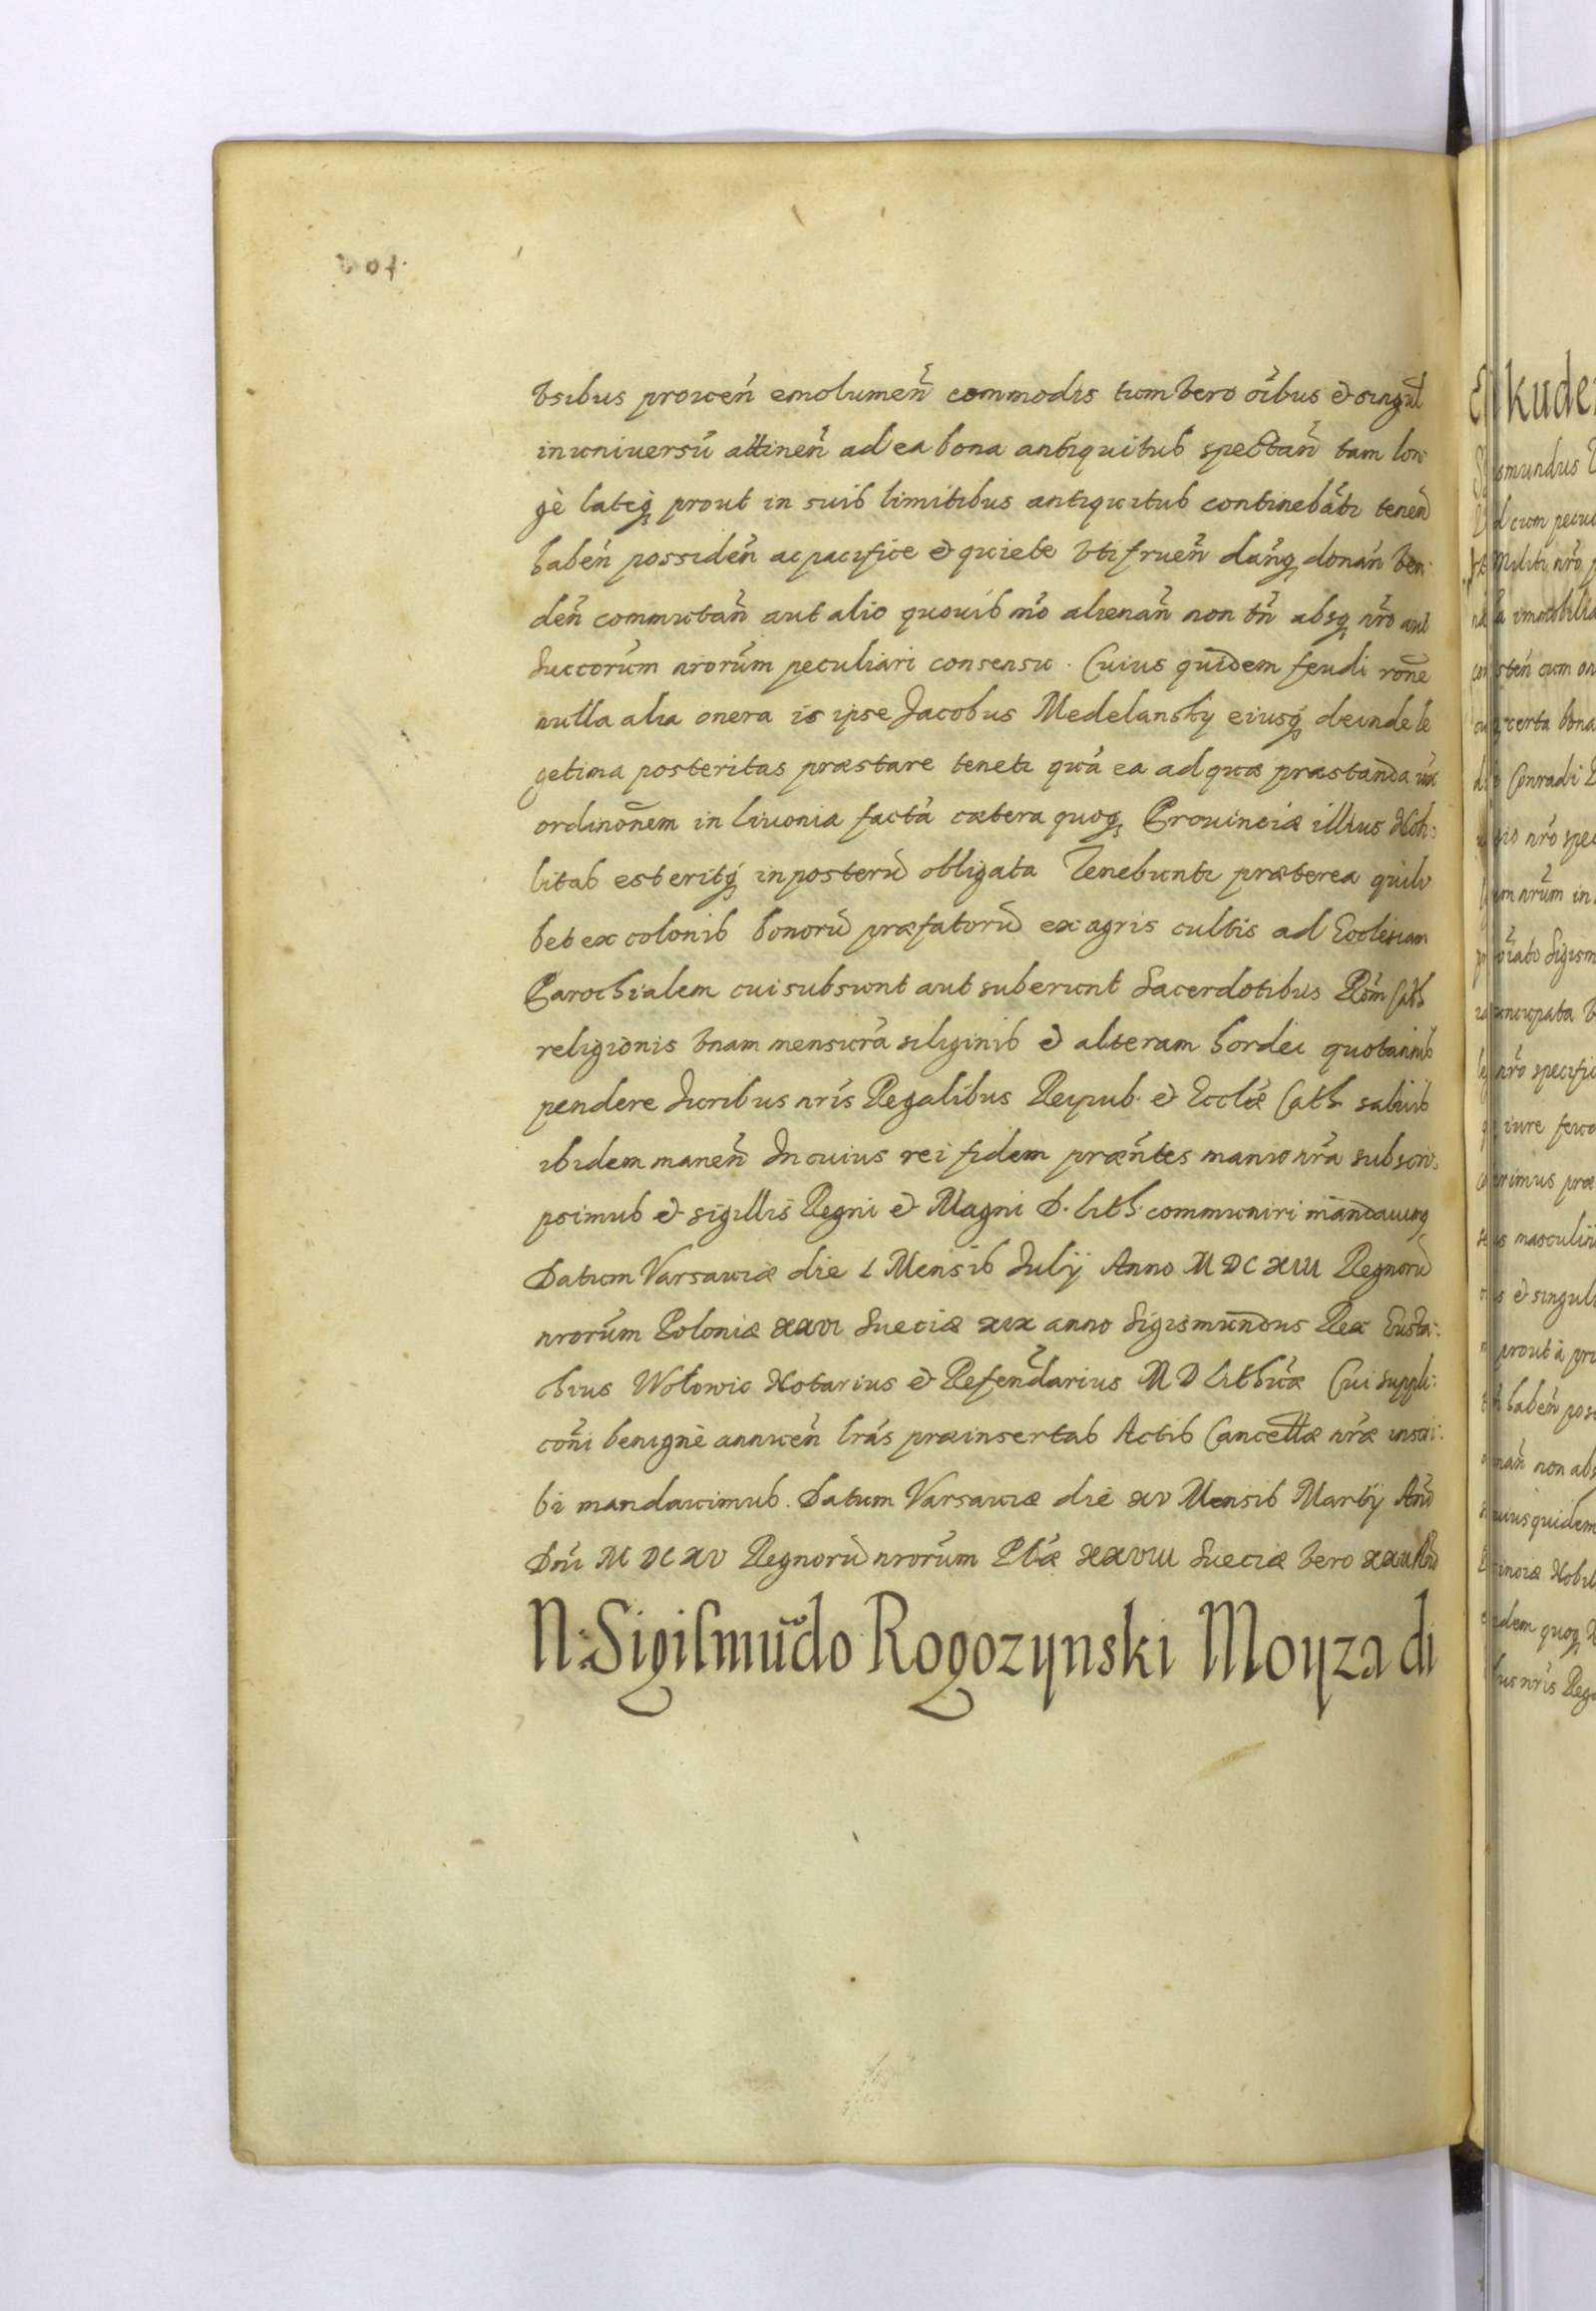 vsibus prouen̄ emolumen̄ commodis tum vero oībus et singul
in uniuersū attinen̄ ad ea bona antiquitus spectan̄ tam lon
gè lateq₃ prout in suis limitibus antiquitus continebātr tenen̄
haben̄ possiden̄ ac pacifice et quiete vti fruen̄ danq₃ donan̄ ven:
den̄ commutan̄ aut alio quouis mō alienan̄ non tn̄ absq₃ nrō aut
Succorūm nrorūm peculiari consensu. Cuius quidem feudi ronē
nulla alia onera is ipse Jacobus Medelansky eiusq₃ deinde le
getima posteritas præstare tenetr quā ea ad quæ præstanda iux
ordinōnem in Liuonia factā cætera quoq₃ Prouinciæ illius Nob:
litas est eritq₃ in posterū obligata Tenebuntr præterea quili
bet ex colonis bonorū præfatorū ex agris cultis ad Ecclesiam
Parochialem cui subsunt aut suberunt Sacerdotibus Rom̄ Cath
religionis vnam mensurā siliginis et alteram hordei quotannis
pendere Juribus nrīs Regalibus Reipub. et Eccliæ Cath. saluis
ibidem manen̄ In cuius rei fidem præn̄tes manu nrā subscri:
psimus et sigillis Regni et Magni D. Lith. communiri mandauimq
Datum Varsauiæ die L Mensis Julij Anno MDCXIII Regnorū
nrorūm Poloniæ XXVI Sueciæ XIX anno Sigismundus Rex Eusta:
chius Wołowic Notarius et Referendarius M D Lithūæ Cui suppli:
cōni benignè annuen̄ lrās præinsertas Actis Cancellæ nrǣ inscri:
bi mandauimus. Datum Varsauiæ die XV Mensis Martij Anō
Dnī MDCXV Regnorū nrorūm Pliǣ XXVIII Sueciæ vero XXII Anō
N: Sigismūdo Rogozynski Moyza di